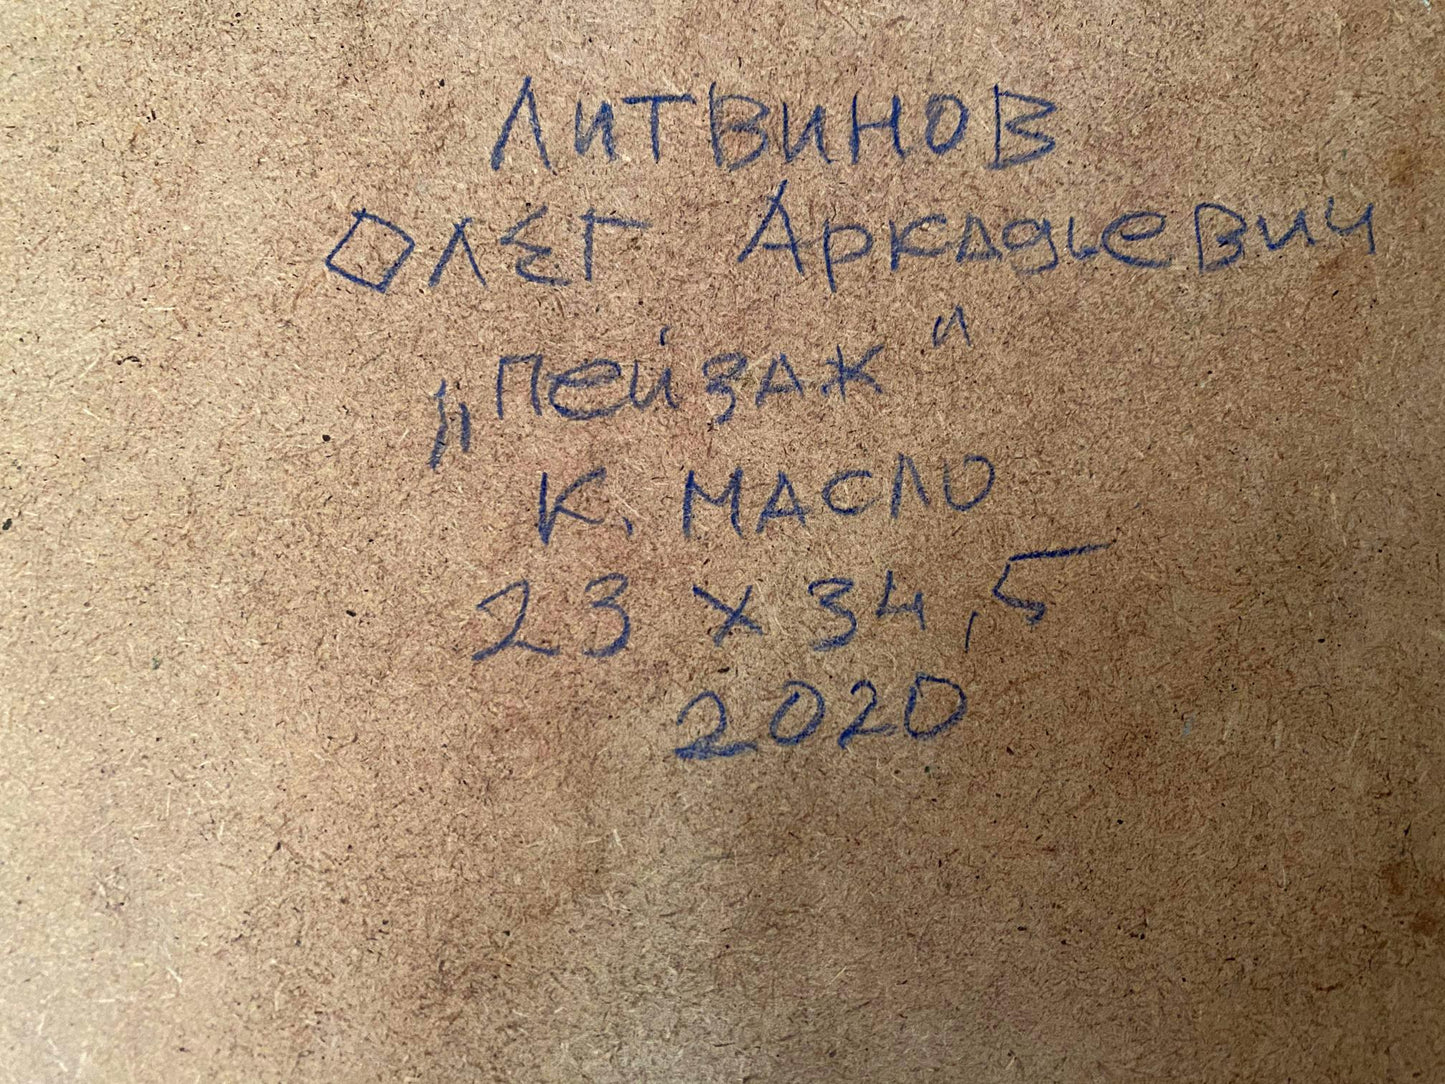 ЛИТВИНОВ
ОЛЕГ Аркадьевич
„Пейзаж“
К. МАСЛО
23 x 34,5
2020